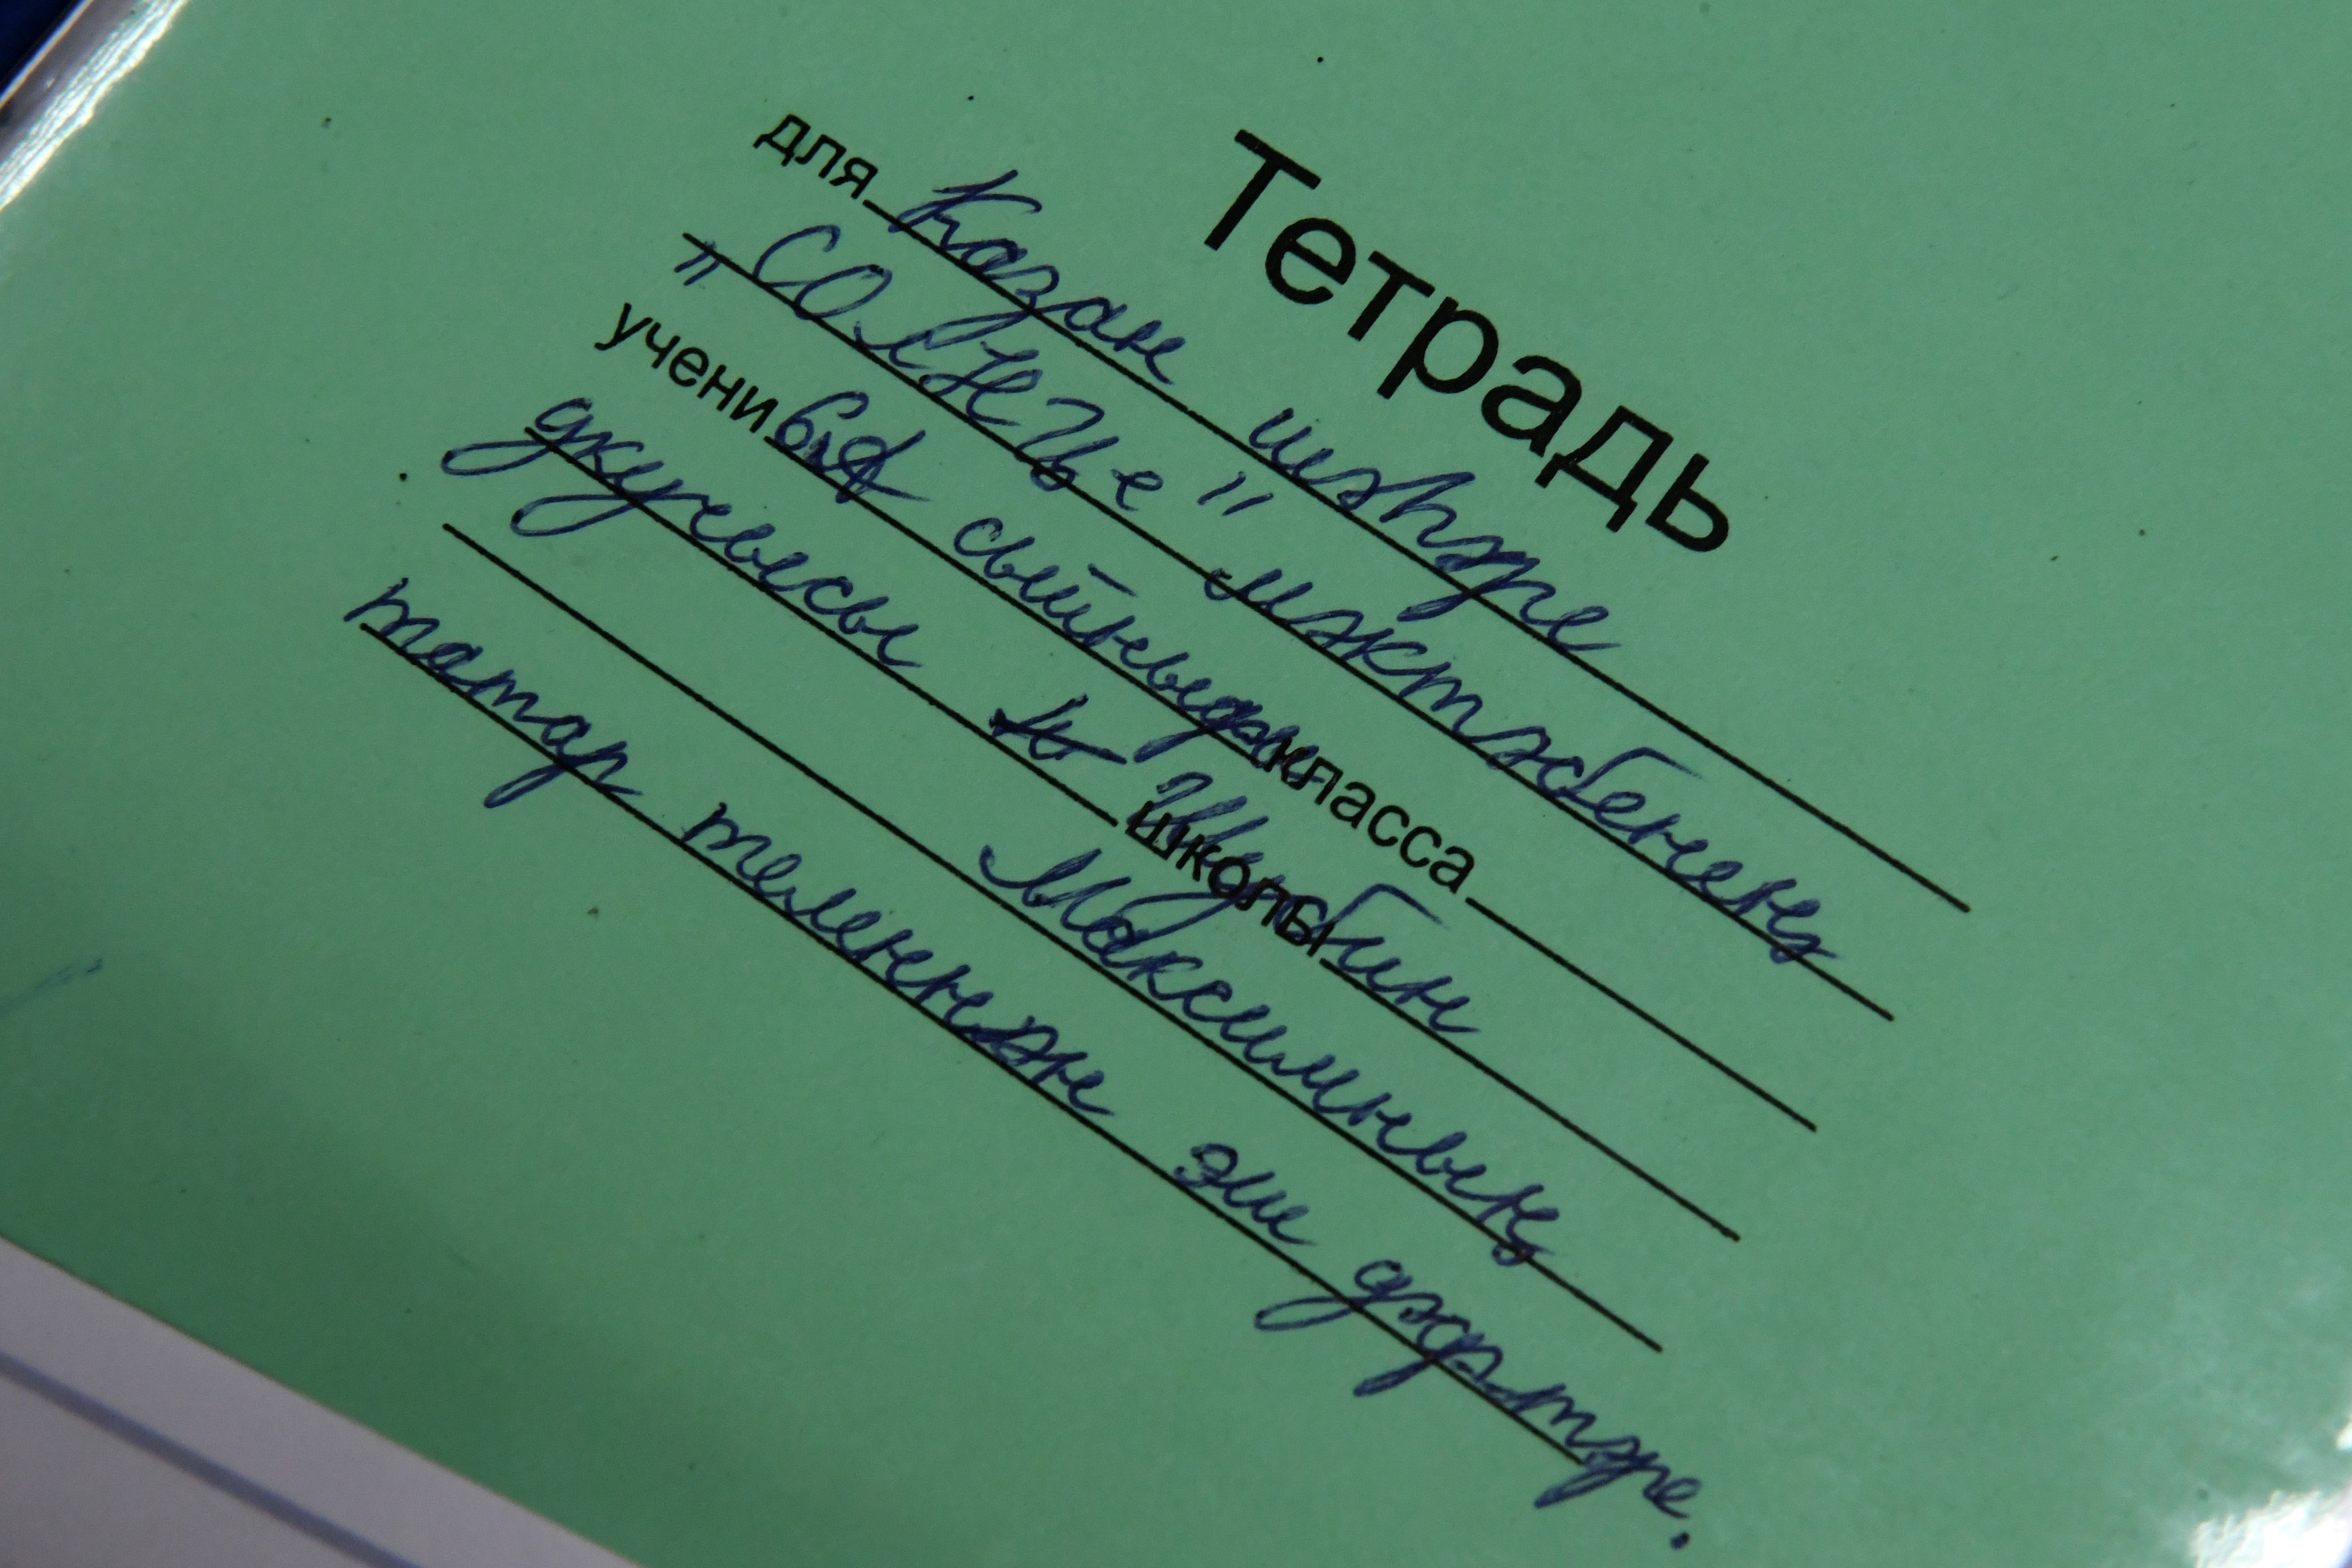 Тетрадь
для Казан шәһәре
"СОЛНЦЕ" мәктәбенең
учени 6А сыйныф класса
укучысы школы Шубин
Максимның
татар теленнән эш дәфтәре.